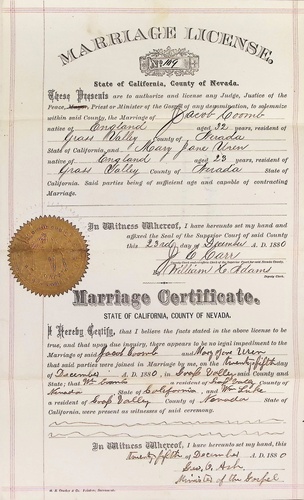 MARRIAGE LICENSE,
No 119
State of California, County of Nevada.
These Presents are to authorize and license any Judge, Justice of the
Peace, Mayor, Priest or Minister of the Gospel of any denomination, to solemnize
within said County, the Marriage of Jacob Coomb
native of England aged 32 years, resident of
Grass Valley County of Nevada
State of California and Mary Jane Uren
native of England aged 23 years, resident of
Grass Valley County of Nevada State of
California. Said parties being of sufficient age and capable of contracting
Marriage.
In Witness Whereof, I have hereunto set my hand and
affixed the Seal of the Superior Court of said County
this 23rd day of December A. D. 1880
J. E. Carr
William D. Adams
Deputy Clerk.
Marriage Certificate.
STATE OF CALIFORNIA, COUNTY OF NEVADA.
I Hereby Certify, that I believe the facts stated in the above license to be
true, and that upon due inquiry, there appears to be no legal impediment to the
Marriage of said Jacob Coomb and Mary Jane Uren
that said parties were joined in Marriage by me, on the twenty fifth of
December 1880, in Grass Valley said County and
State; that Wm Coombs a resident of Grass Valley County
Nevada State of California, and Wm Luke
a resident of Grass Valley County of Nevada State of
California, were present as witnesses of said ceremony.
In Witness Whereof, I have hereunto set my hand, this
twenty fifth of December A. D. 1880
Geo. O. Ash
Minister of the Gospel